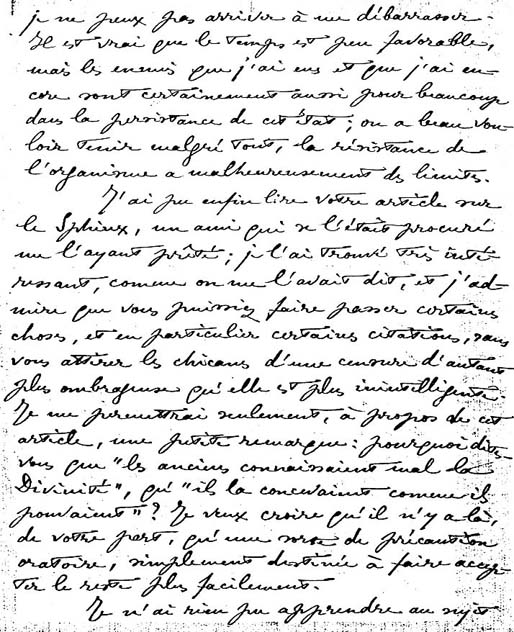 je ne peux pas arriver à me débarrasser.
Il est vrai que le temps est peu favorable,
mais les ennuis que j'ai eus et que j'ai en-
core sont certainement aussi pour beaucoup
dans la persistance de cet état ; on a beau vou-
loir tenir malgré tout, la résistance de
l'organisme a malheureusement des limites.
J'ai pu enfin lire votre article sur
le Sphinx, un ami qui se l'était procuré
me l'ayant prêté ; je l'ai trouvé très inté-
ressant, comme on me l'avait dit, et j'ad-
mire que vous puissiez faire passer certaines
choses, et en particulier certaines citations, sans
vous attirer les chicanes d'une censure d'autant
plus ombrageuse qu'elle est plus inintelligente.
Je me permettrai seulement, à propos de cet
article, une petite remarque : pourquoi dites-
vous que "les anciens connaissaient mal la
Divinité", qu'"ils la concevaient comme ils
pouvaient" ? Je veux croire qu'il n'y a là,
de votre part, qu'une sorte de précaution
oratoire, simplement destinée à faire accep-
ter le reste plus facilement.
Je n'ai rien pu apprendre au sujet